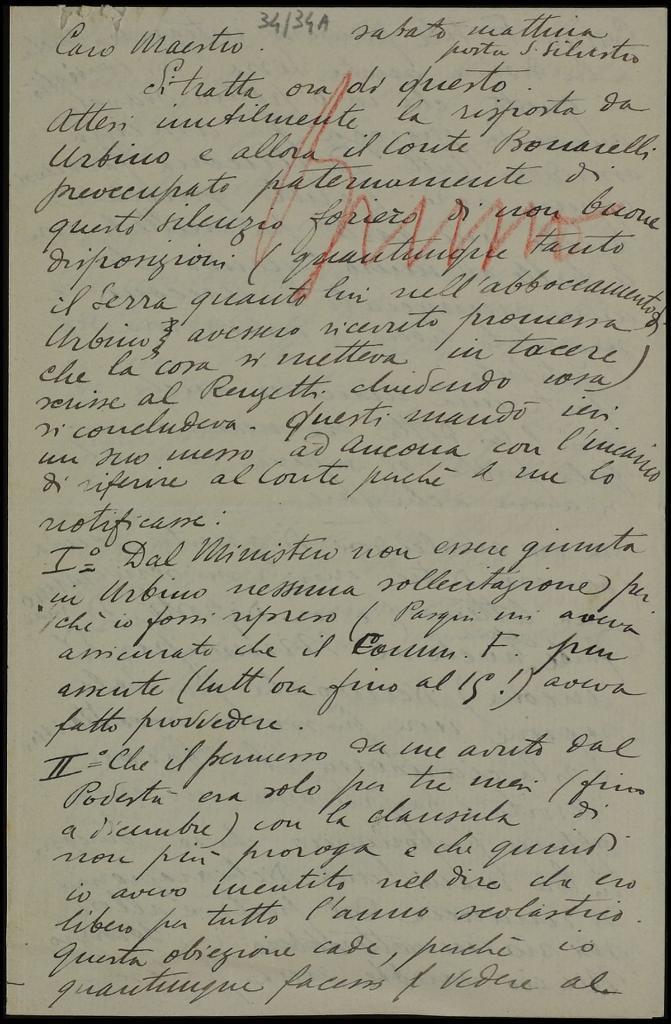 34/34A
sabato mattina
Caro Maestro. posta S. Silvestro
Si tratta ora di questo.
Attesi inutilmente la risposta da
Urbino e allora il Conte Bonarelli
preoccupato paternamente di
questo silenzio foriero di non buone
disposizioni (quantunque tanto
il Serra quanto lui nell'abboccamento di
Urbino avessero ricevuto promessa
che la cosa si metteva in tacere)
scrisse al chiedendo cosa
si concludeva. Questi mandò ieri
un suo messo ad Ancona con l'incarico
di riferire al Conte perchè a me lo
notificasse:
I.º Dal Ministero non essere giunta
in Urbino nessuna sollecitazione per
chè io fossi ripreso (Pasqui mi aveva
assicurato che il Comm. F. pur
assente (tutt'ora fino al 15!) aveva
fatto provvedere.
II.º Che il permesso da me avuto dal
Podestà era solo per tre mesi (fino
a dicembre) con la clausula di
non più proroga e che quindi
io avevo mentito nel dire che ero
libero per tutto l'anno scolastico.
Questa obiezione cade, perchè io
quantunque facessi vedere al